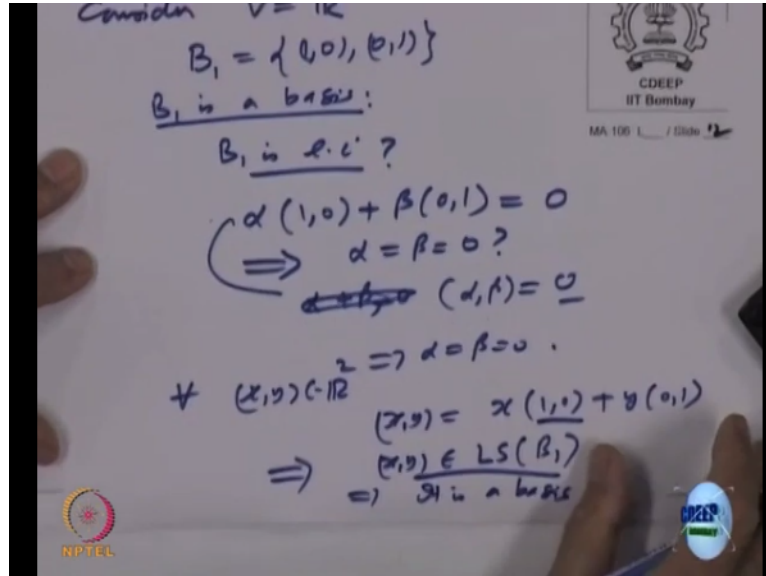 Consider V = ℝ
B₁ = {(1,0), (0,1)}
B₁ is a basis:
B₁ is l.i ?
α(1,0) + β(0,1) = 0
⟹ α = β = 0 ?
(α,β) = 0
⟹ α = β = 0 .
∀ (x,y) ∈ ℝ²
(x,y) = x(1,0) + y(0,1)
⟹ (x,y) ∈ LS(B₁)
⟹ It is a basis
CDEEP
IIT Bombay
MA 106 L / Slide 12
NPTEL
CDEEP